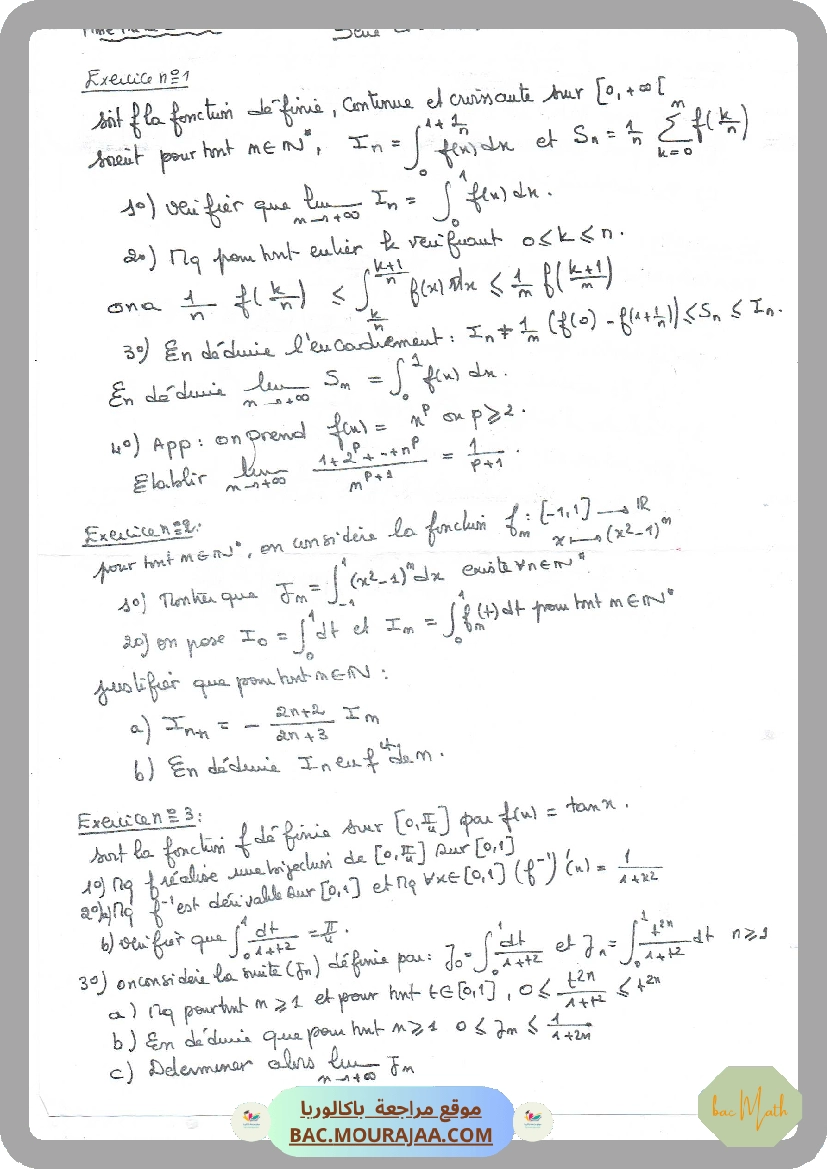 Série
Exercice n°1
soit f la fonction définie, continue et croissante sur [0, +∞[
soient pour tout n ∈ ℕ*, I_n = ∫_0^{1+1/n} f(x) dx et S_n = 1/n ∑_{k=0}^{n} f(k/n)
1°) Verifier que lim_{n→+∞} I_n = ∫_0^1 f(x) dx.
2°) Mq pour tout entier k verifiant 0 ≤ k ≤ n.
on a 1/n f(k/n) ≤ ∫_{k/n}^{(k+1)/n} f(x) dx ≤ 1/n f((k+1)/n)
3°) En déduire l'encadrement : I_n + 1/n (f(0) - f(1+1/n)) ≤ S_n ≤ I_n.
En déduire lim_{n→+∞} S_n = ∫_0^1 f(x) dx.
4°) App : on prend f(x) = x^p où p ≥ 2.
Etablir lim_{n→+∞} (1+2^p+--+n^p)/n^{p+1} = 1/(p+1).
Exercice n°2:
pour tout n ∈ ℕ*, on considère la fonction f_n : [-1,1] → ℝ
x ↦ (x²-1)^n
1°) Montrer que J_n = ∫_{-1}^1 (x²-1)^n dx existe ∀n ∈ ℕ*
2°) on pose I_0 = ∫_0^1 dt et I_n = ∫_0^1 f_n(t) dt pour tout n ∈ ℕ*
justifier que pour tout n ∈ ℕ :
a) I_{n+1} = - (2n+2)/(2n+3) I_n
b) En déduire I_n en f^{ct} de n.
Exercice n°3:
soit la fonction f définie sur [0, π/4] par f(x) = tan x.
1°) Mq f réalise une bijection de [0, π/4] sur [0,1]
2°) a) Mq f^{-1} est dérivable sur [0,1] et Mq ∀x ∈ [0,1] (f^{-1})'(x) = 1/(1+x²)
b) Verifier que ∫_0^1 dt/(1+t²) = π/4.
3°) on considère la suite (J_n) définie par : J_0 = ∫_0^1 dt/(1+t²) et J_n = ∫_0^1 t^{2n}/(1+t²) dt n ≥ 1
a) Mq pour tout n ≥ 1 et pour tout t ∈ [0,1], 0 ≤ t^{2n}/(1+t²) ≤ t^{2n}
b) En déduire que pour tout n ≥ 1 0 ≤ J_n ≤ 1/(1+2n)
c) Determiner alors lim_{n→+∞} J_n
موقع مراجعة باكالوريا
BAC.MOURAJAA.COM
bac Math